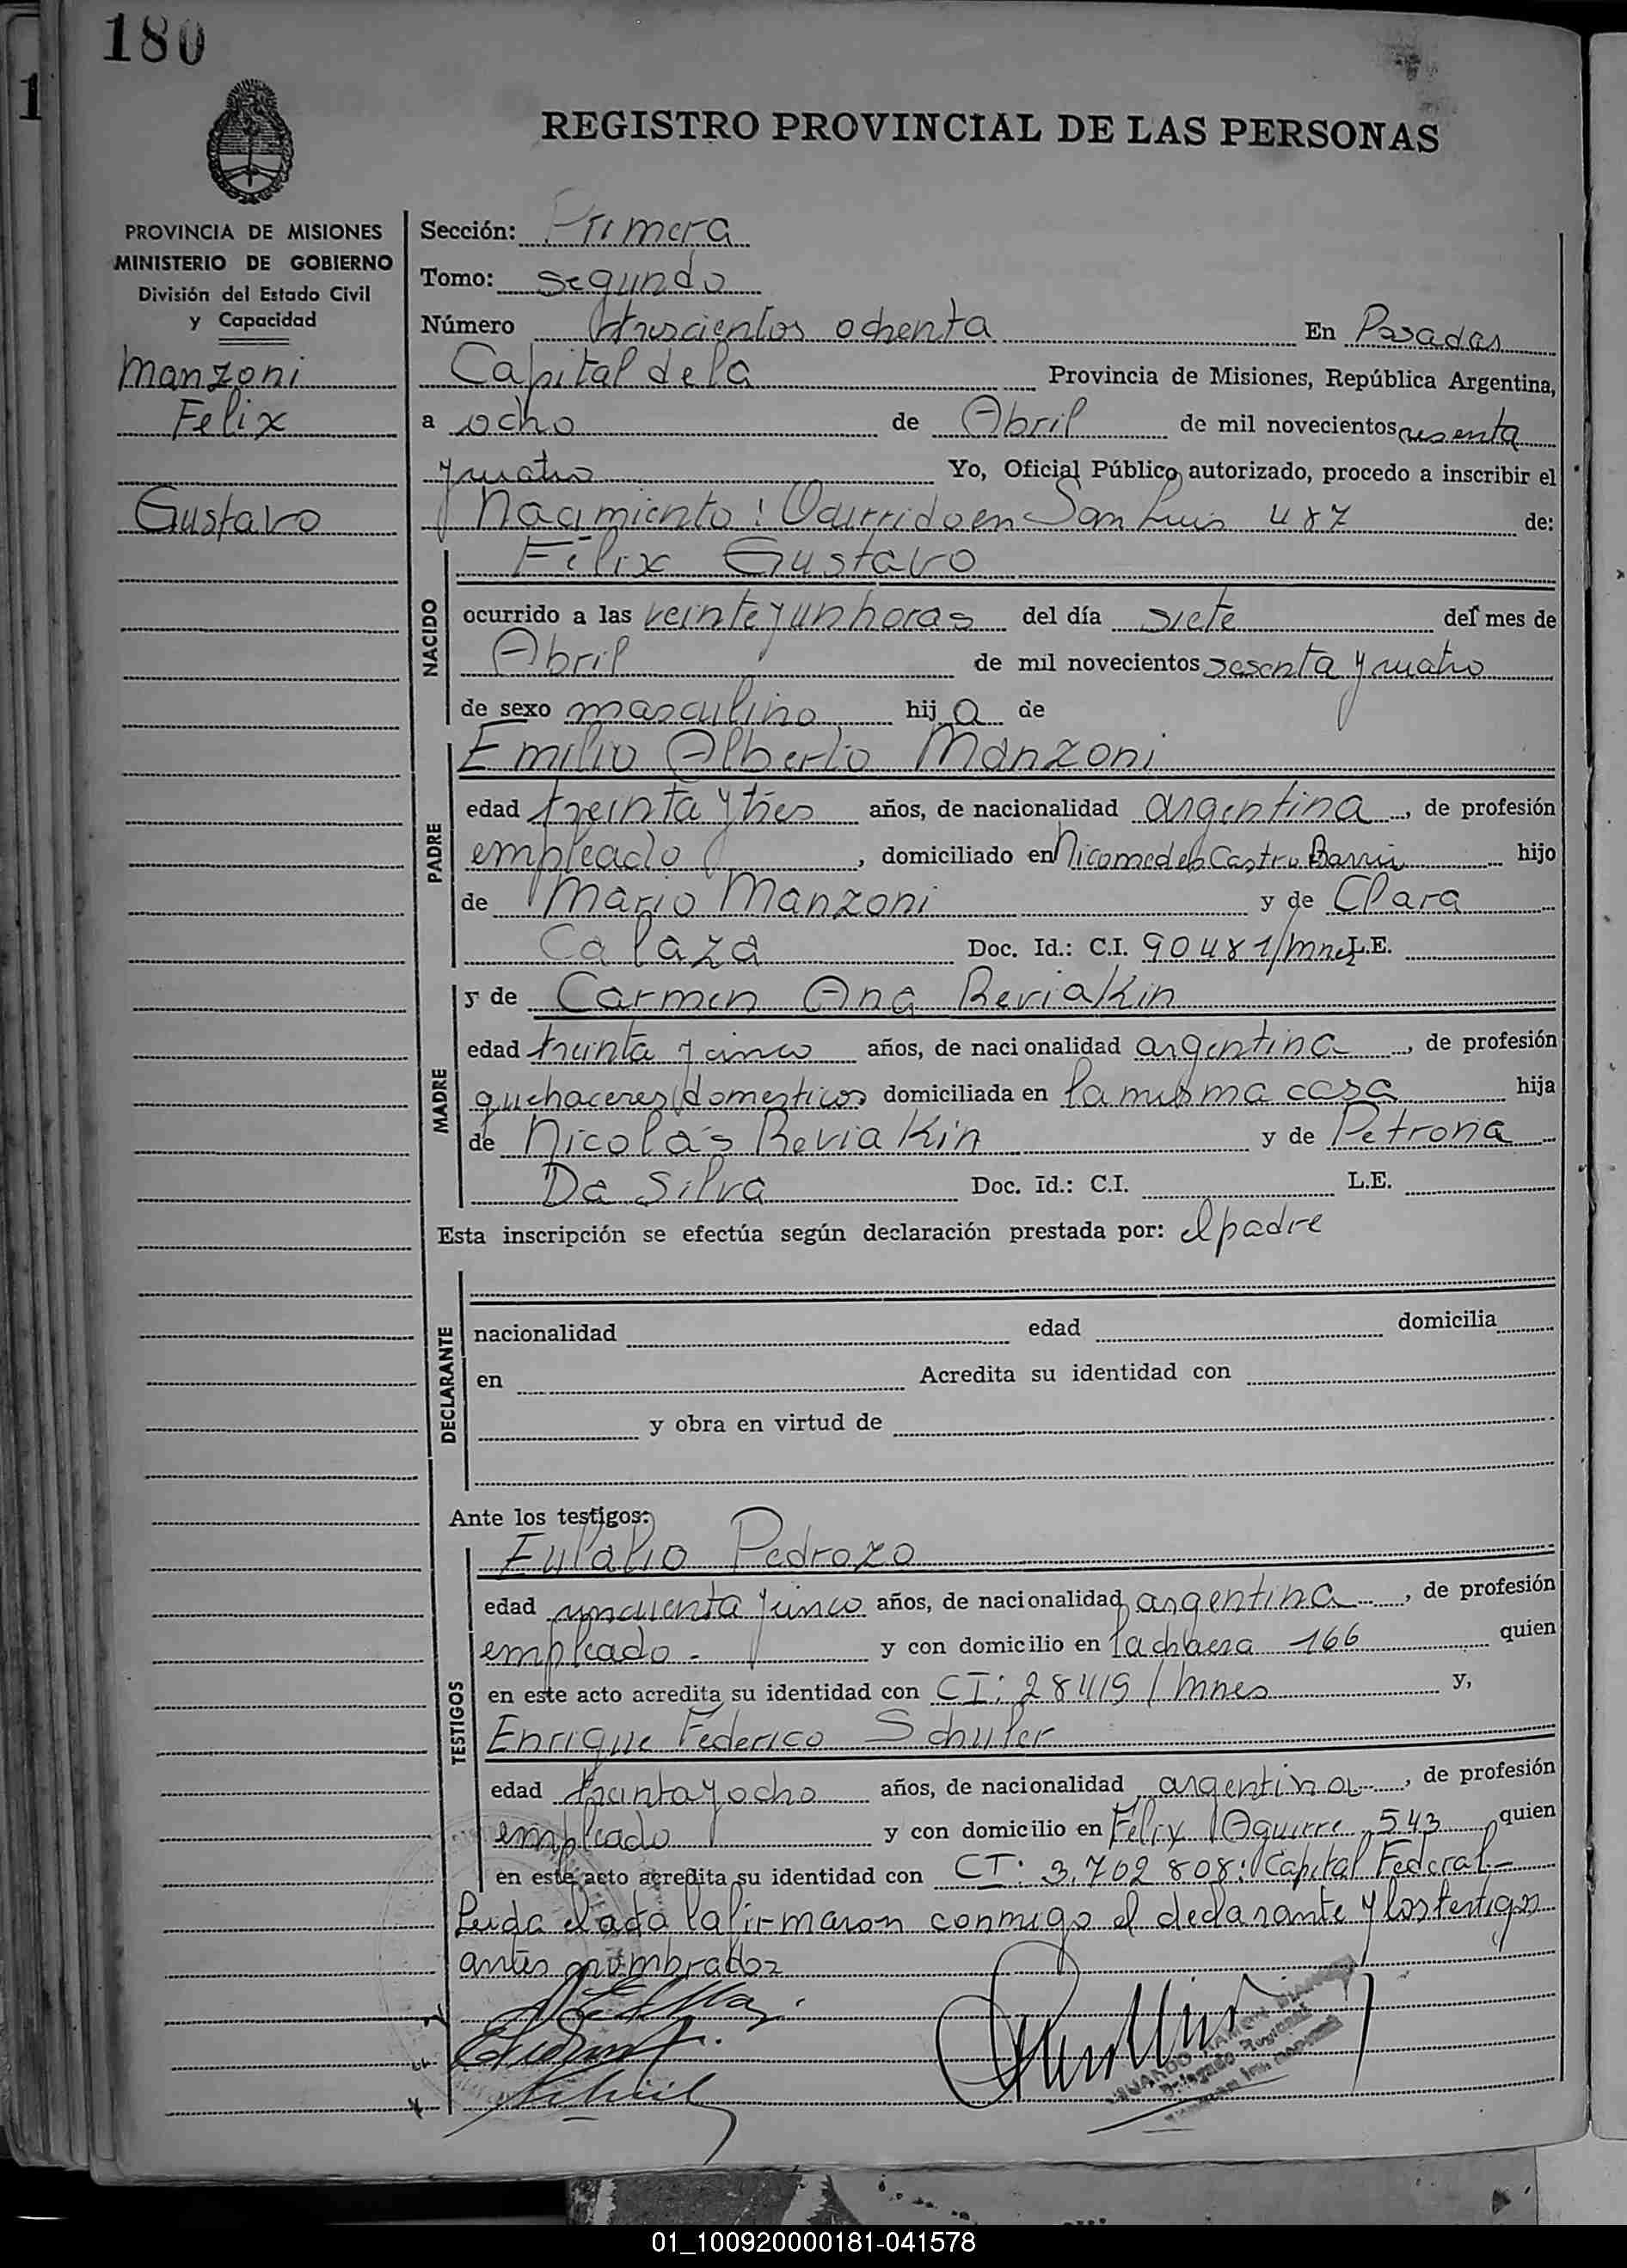 180
REGISTRO PROVINCIAL DE LAS PERSONAS
PROVINCIA DE MISIONES
MINISTERIO DE GOBIERNO
División del Estado Civil
y Capacidad
Manzoni
Felix
Gustavo
Sección: Primera
Tomo: segundo
Número trescientos ochenta En Posadas
Capital de la Provincia de Misiones, República Argentina,
a ocho de Abril de mil novecientos sesenta
y cuatro Yo, Oficial Público autorizado, procedo a inscribir el
Nacimiento: Ocurrido en San Luis 487 de:
NACIDO
Félix Gustavo
ocurrido a las veinte y un horas del día siete del mes de
Abril de mil novecientos sesenta y cuatro
de sexo masculino hij o de
PADRE
Emilio Alberto Manzoni
edad treinta y tres años, de nacionalidad argentina, de profesión
empleado, domiciliado en Nicomedes Castro Barrio hijo
de Mario Manzoni y de Clara
Calaza Doc. Id.: C.I. 90481/mnes L.E.
MADRE
y de Carmen Ana Reviakin
edad treinta y cinco años, de nacionalidad argentina, de profesión
quehaceres domesticos domiciliada en la misma casa hija
de Nicolás Reviakin y de Petrona
Da Silva Doc. Id.: C.I. L.E.
Esta inscripción se efectúa según declaración prestada por: el padre
DECLARANTE
nacionalidad edad domicilia
en Acredita su identidad con
y obra en virtud de
Ante los testigos:
TESTIGOS
Eulalio Pedrozo
edad cincuenta y cinco años, de nacionalidad argentina, de profesión
empleado - y con domicilio en la chacra 166 quien
en este acto acredita su identidad con CI: 28419/mnes y,
Enrique Federico Schuler
edad treinta y ocho años, de nacionalidad argentina, de profesión
empleado y con domicilio en Felix Aguirre 543 quien
en este acto acredita su identidad con CI: 3.702 808: Capital Federal.-
Leida el acta la firmaron conmigo el declarante y los testigos
antes nombrados
Delegado Regional
01_100920000181-041578